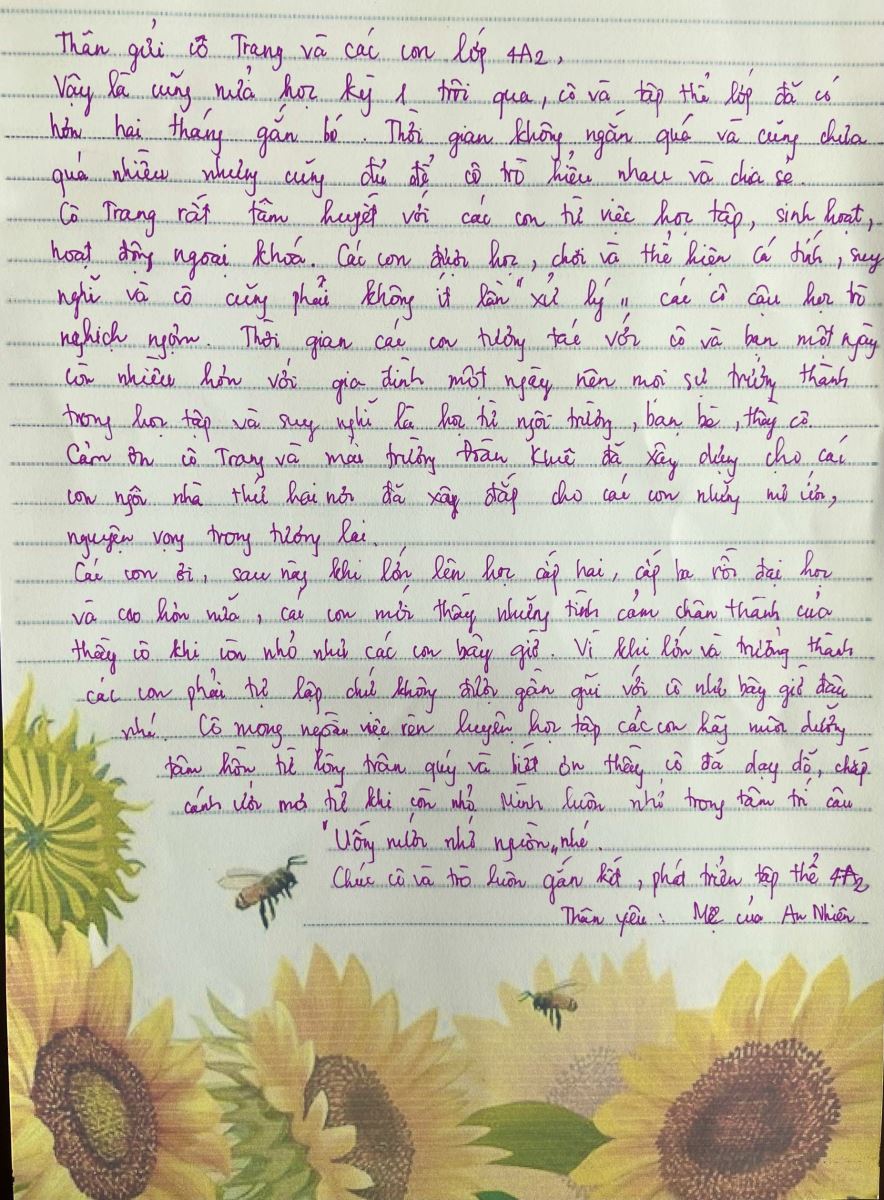 Thân gửi cô Trang và các con lớp 4A2,
Vậy là cũng nửa học kỳ 1 trôi qua, cô và tập thể lớp đã có
hơn hai tháng gắn bó. Thời gian không ngắn quá và cũng chưa
quá nhiều nhưng cũng đủ để cô trò hiểu nhau và chia sẻ.
Cô Trang rất tâm huyết với các con từ việc học tập, sinh hoạt,
hoạt động ngoại khoá. Các con được học, chơi và thể hiện cá tính, suy
nghĩ và cô cũng phải không ít lần "xử lý" các cô cậu học trò
nghịch ngợm. Thời gian các con tương tác với cô và bạn một ngày
còn nhiều hơn với gia đình một ngày nên mọi sự trưởng thành
trong học tập và suy nghĩ là học từ ngôi trường, bạn bè, thầy cô.
Cảm ơn cô Trang và mái trường Trần Khuê đã xây dựng cho các
con ngôi nhà thứ hai nơi đã xây đắp cho các con những mơ ước,
nguyện vọng trong tương lai.
Các con ơi, sau này khi lớn lên học cấp hai, cấp ba rồi đại học
và cao hơn nữa, các con mới thấy những tình cảm chân thành của
thầy cô khi còn nhỏ như các con bây giờ. Vì khi lớn và trưởng thành
các con phải tự lập chứ không được gần gũi với cô như bây giờ đâu
nhé. Cô mong ngoài việc rèn luyện học tập các con hãy nuôi dưỡng
tâm hồn từ lòng trân quý và biết ơn thầy cô đã dạy dỗ, chắp
cánh ước mơ từ khi còn nhỏ. Mình luôn nhớ trong tâm trí câu
"Uống nước nhớ nguồn" nhé.
Chúc cô và trò luôn gắn kết, phát triển tập thể 4A2
Thân yêu: Mẹ của An Nhiên